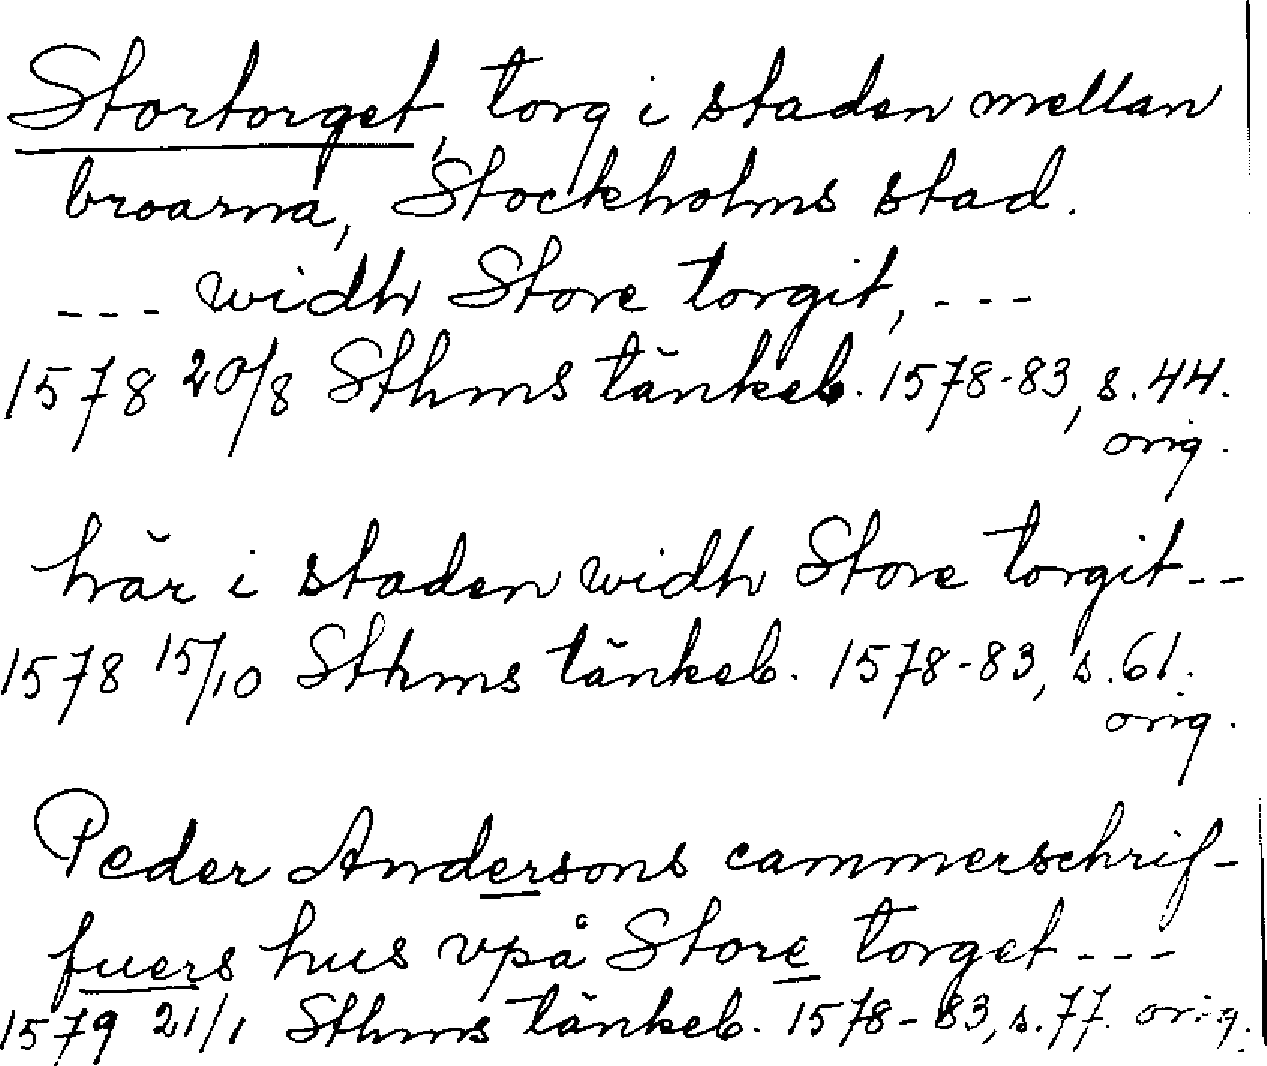 Stortorget, torg i staden mellan
broarna, Stockholms stad.
--- widh Store torgit, ---
1578 20/8 Sthms tänkeb. 1578-83, s. 44.
orig.
här i staden widh Store torgit--
1578 15/10 Sthms tänkeb. 1578-83, s. 61.
orig.
Peder Andersons cammerschrif-
fuers hus vpå Store torget---
1579 21/1 Sthms tänkeb. 1578-83, s. 77. orig.